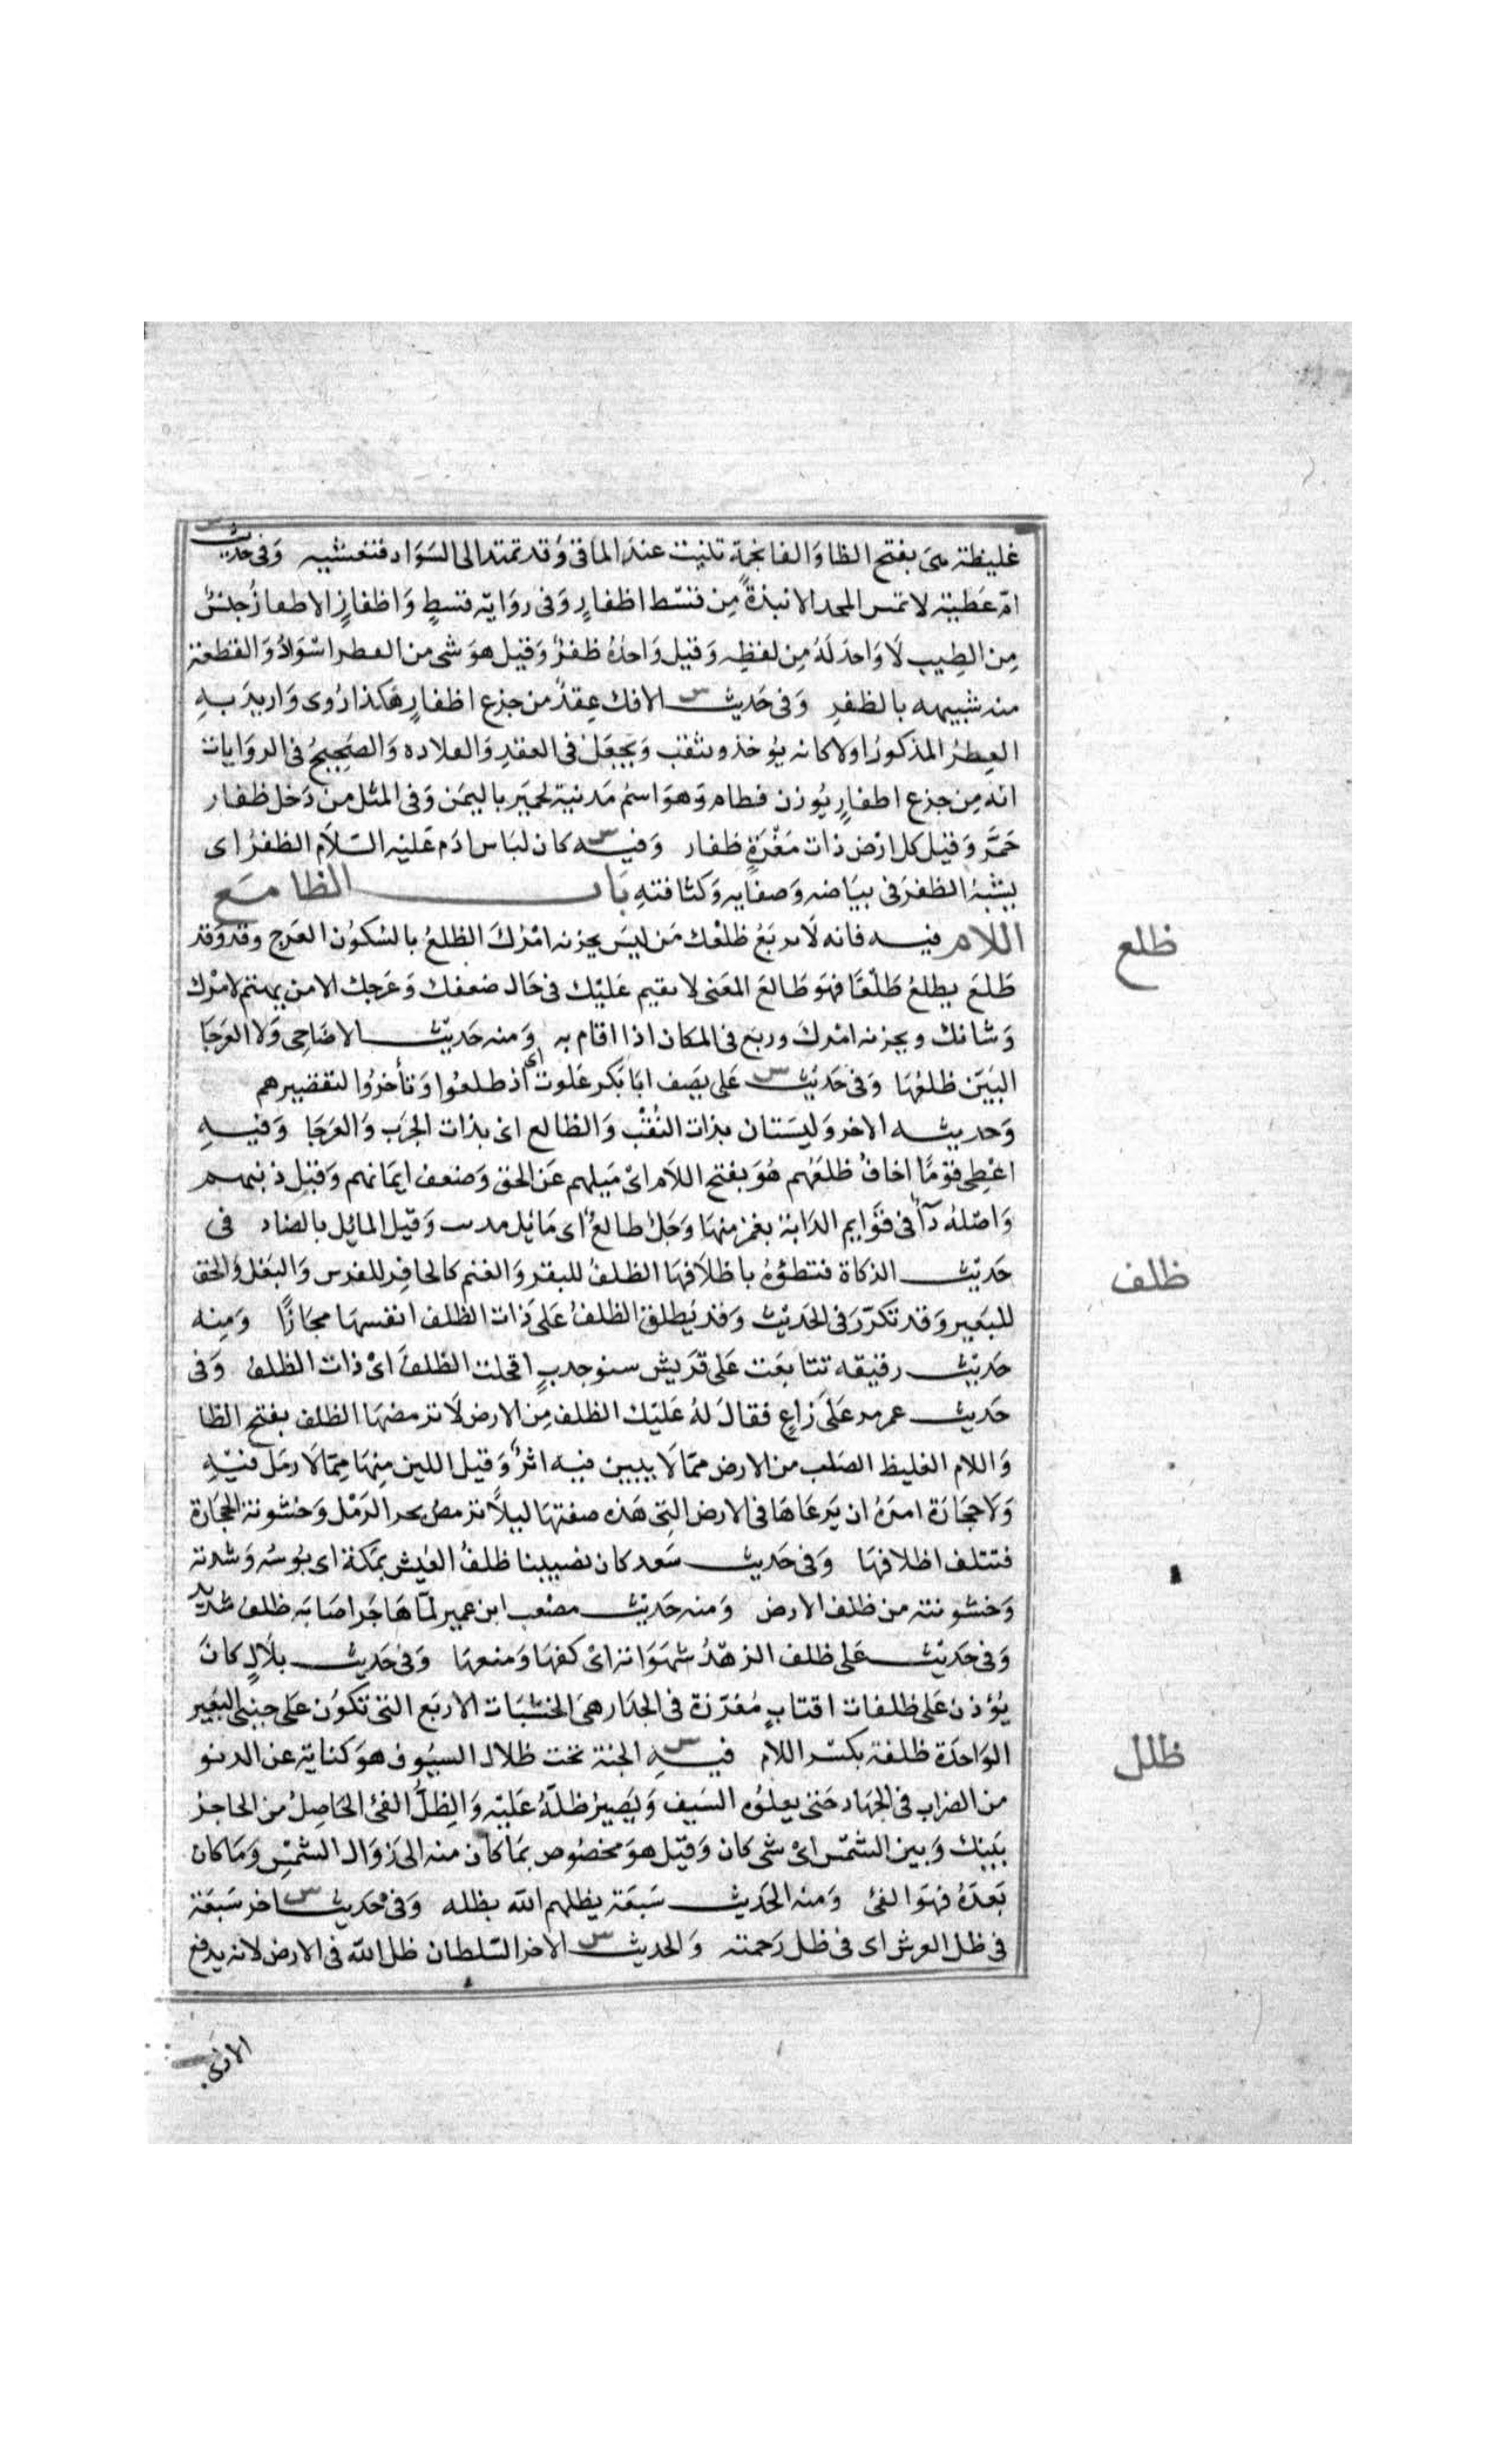 غليظة هى بفتح الظا والفا لحمة تنبت عند الماقى وقد تمتد الى السواد فتغشيه وفى حديث
ام عطية لا تمس المحد الا نبذة من قسط اظفار وفى رواية قسط واظفار الاظفار جنس
من الطيب لا واحد له من لفظه وقيل واحده ظفر وقيل هو شى من العطر اسود والقطعة
منه شبيهه بالظفر وفى حديث س الافك عقد من جزع اظفار هكذا روى واريد به
العطر المذكور اولا كانه يوخذ ويثقب ويجعل فى العقد والقلاده والصحيح فى الروايات
انه من جزع اظفار بوزن قطام وهو اسم مدنية لحمير باليمن وفى المثل من دخل ظفار
حمر وقيل كل ارض ذات مغرة ظفار وفيه س كان لباس ادم عليه السلام الظفر اى
يشبه الظفر فى بياضه وصفايه وكثافته باب الظا مع
اللام فيه فانه لا يربع على ظلعك من ليس يحزنه امرك الظلع بالسكون العرج وقد
ظلع يظلع ظلعا فهو ظالع المعنى لا يقيم عليك فى حال ضعفك وعرجك الا من يهتم لامرك
وشانك ويحزنه امرك وربع فى المكان اذا اقام به ومنه حديث الاضاحى ولا العرجا
البين ظلعها وفى حديث س على يصف ابا بكر علوت اى اذ ظلعوا وتأخروا لتقصيرهم
وحديثه الاخر وليستان بذات النقب والظالع اى بذات الجرب والعرجا وفيه
اعطى قوما اخاف ظلعهم هو بفتح اللام اى ميلهم عن الحق وضعف ايمانهم وقيل ذنبهم
واصله دآ فى قوايم الدابة يغمز منها ورجل ظالع اى مائل مدنب وقيل المائل بالضاد فى
حديث الزكاة فتطؤه باظلافها الظلف للبقر والغنم كالحافر للفرس والبغل والخف
للبعير وقد تكرر فى الحديث وقد يطلق الظلف على ذات الظلف انفسها مجازا ومنه
حديث رقيقه تتابعت على قريش سنو جدب اقحلت الظلف اى ذات الظلف وفى
حديث عمر مر على راع فقال له عليك الظلف من الارض لا ترمضها الظلف بفتح الظا
واللام الغليظ الصلب من الارض مما لا يبين فيه اثر وقيل اللين منها مما لا رمل فيه
ولا حجارة امره ان يرعاها فى الارض التى هذه صفتها ليلا ترمض بحر الرمل وخشونة الحجارة
فتتلف اظلافها وفى حديث سعد كان يصيبنا ظلف العيش بمكة اى بوسه وشدته
وخشونته من ظلف الارض ومنه حديث مصعب ابن عمير لما هاجر اصابه ظلف شديد
وفى حديث على ظلف الزهد شهواته اى كفها ومنعها وفى حديث بلال كان
يؤذن على ظلفات اقتاب مغرزة فى الجدار هى الخشبات الاربع التى تكون على جنبى البعير
الواحدة ظلفة بكسر اللام فيه س الجنة تحت ظلال السيوف هو كناية عن الدنو
من الضراب فى الجهاد حتى يعلوه السيف ويصير ظله عليه والظل الفئ الحاصل من الحاجز
بينك وبين الشمس اى شى كان وقيل هو مخصوص بما كان منه الى زوال الشمس وما كان
بعده فهو الفئ ومنه الحديث سبعة يظلهم الله بظله وفى حديث س اخر سبعة
فى ظل العرش اى فى ظل رحمته والحديث س الاخر السلطان ظل الله فى الارض لانه يدفع
الاذى
ظلع
ظلف
ظلل